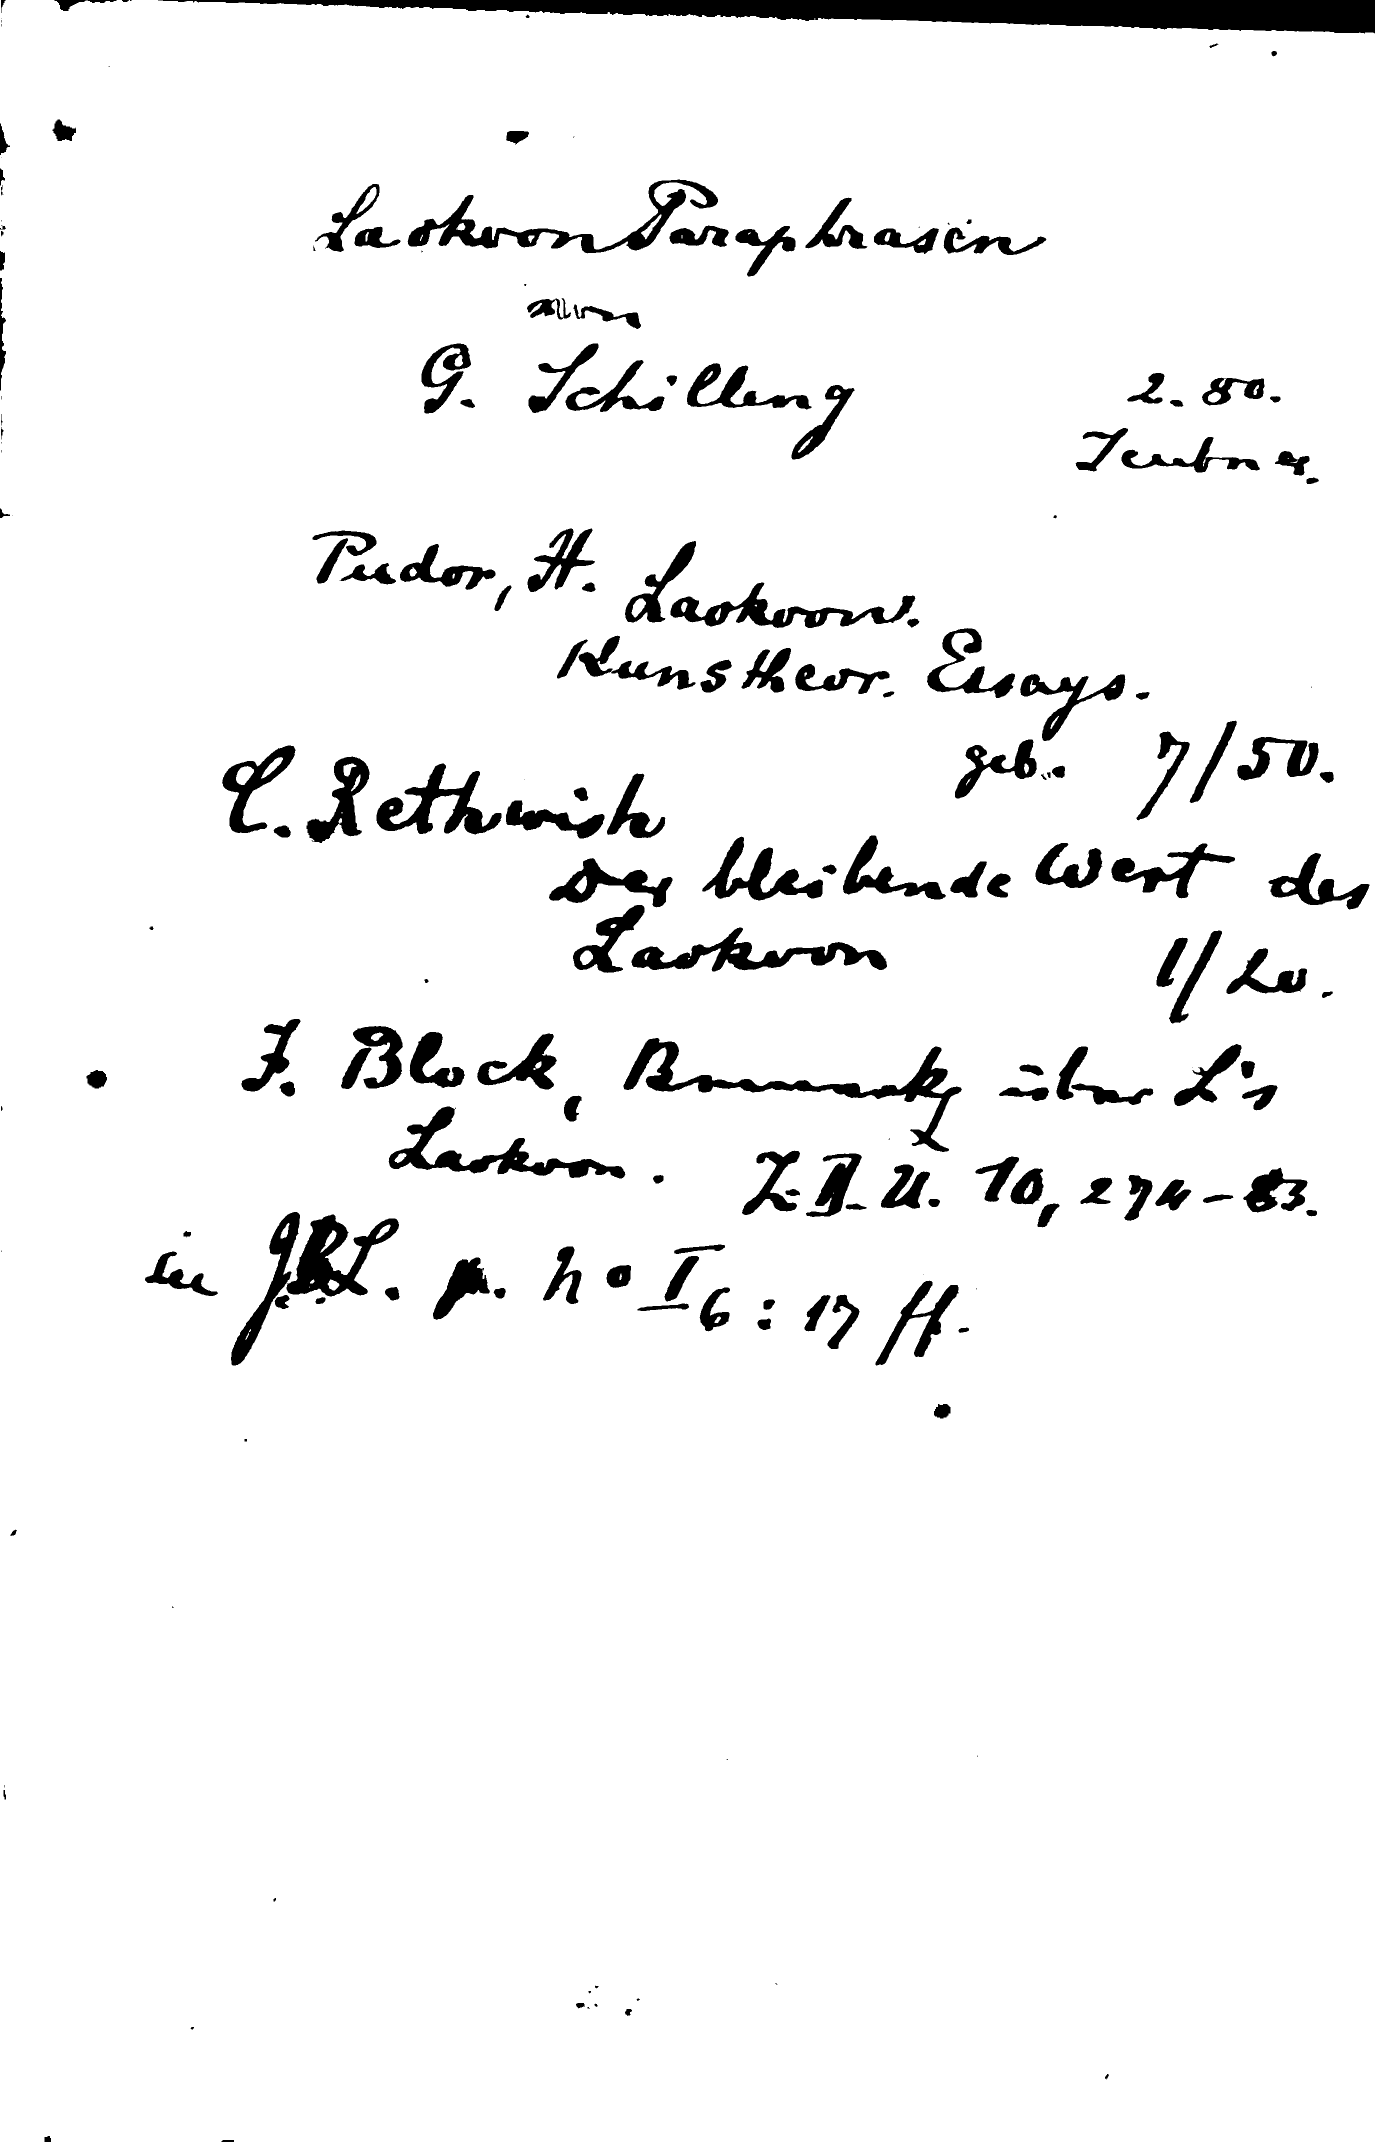 Laokoon Paraphrasen
von
G. Schilling 2.80.
Teubner.
Pudor, H. Laokoon.
Kunsttheor. Essays.
geb. 7/50.
C. Rethwish
Der bleibende Wert des
Laokoon 1/20.
F. Block, über L's
Laokoon. Z. D. U. 10, 274-83.
in J.B.L. n° I 6: 17 ff.